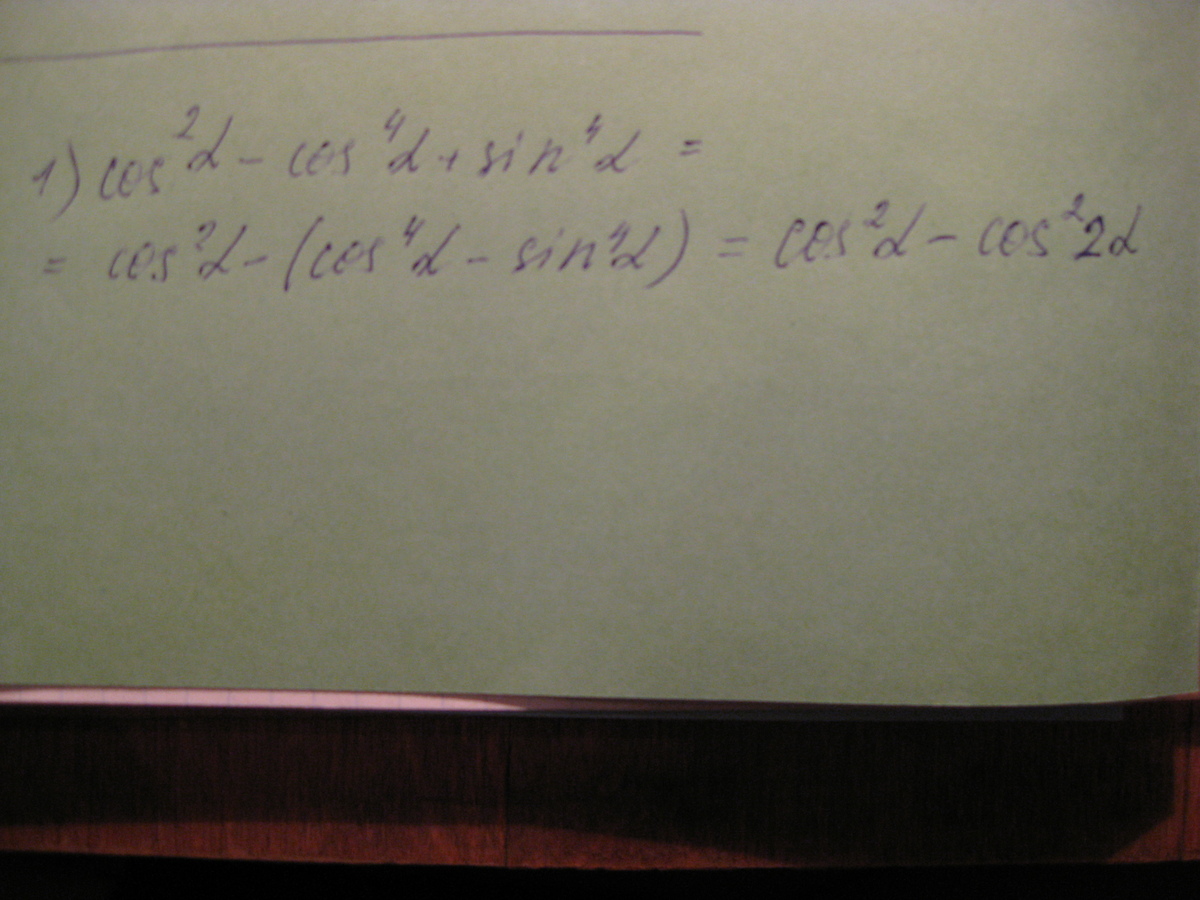 1) cos²α - cos⁴α + sin⁴α =
= cos²α - (cos⁴α - sin⁴α) = cos²α - cos²2α